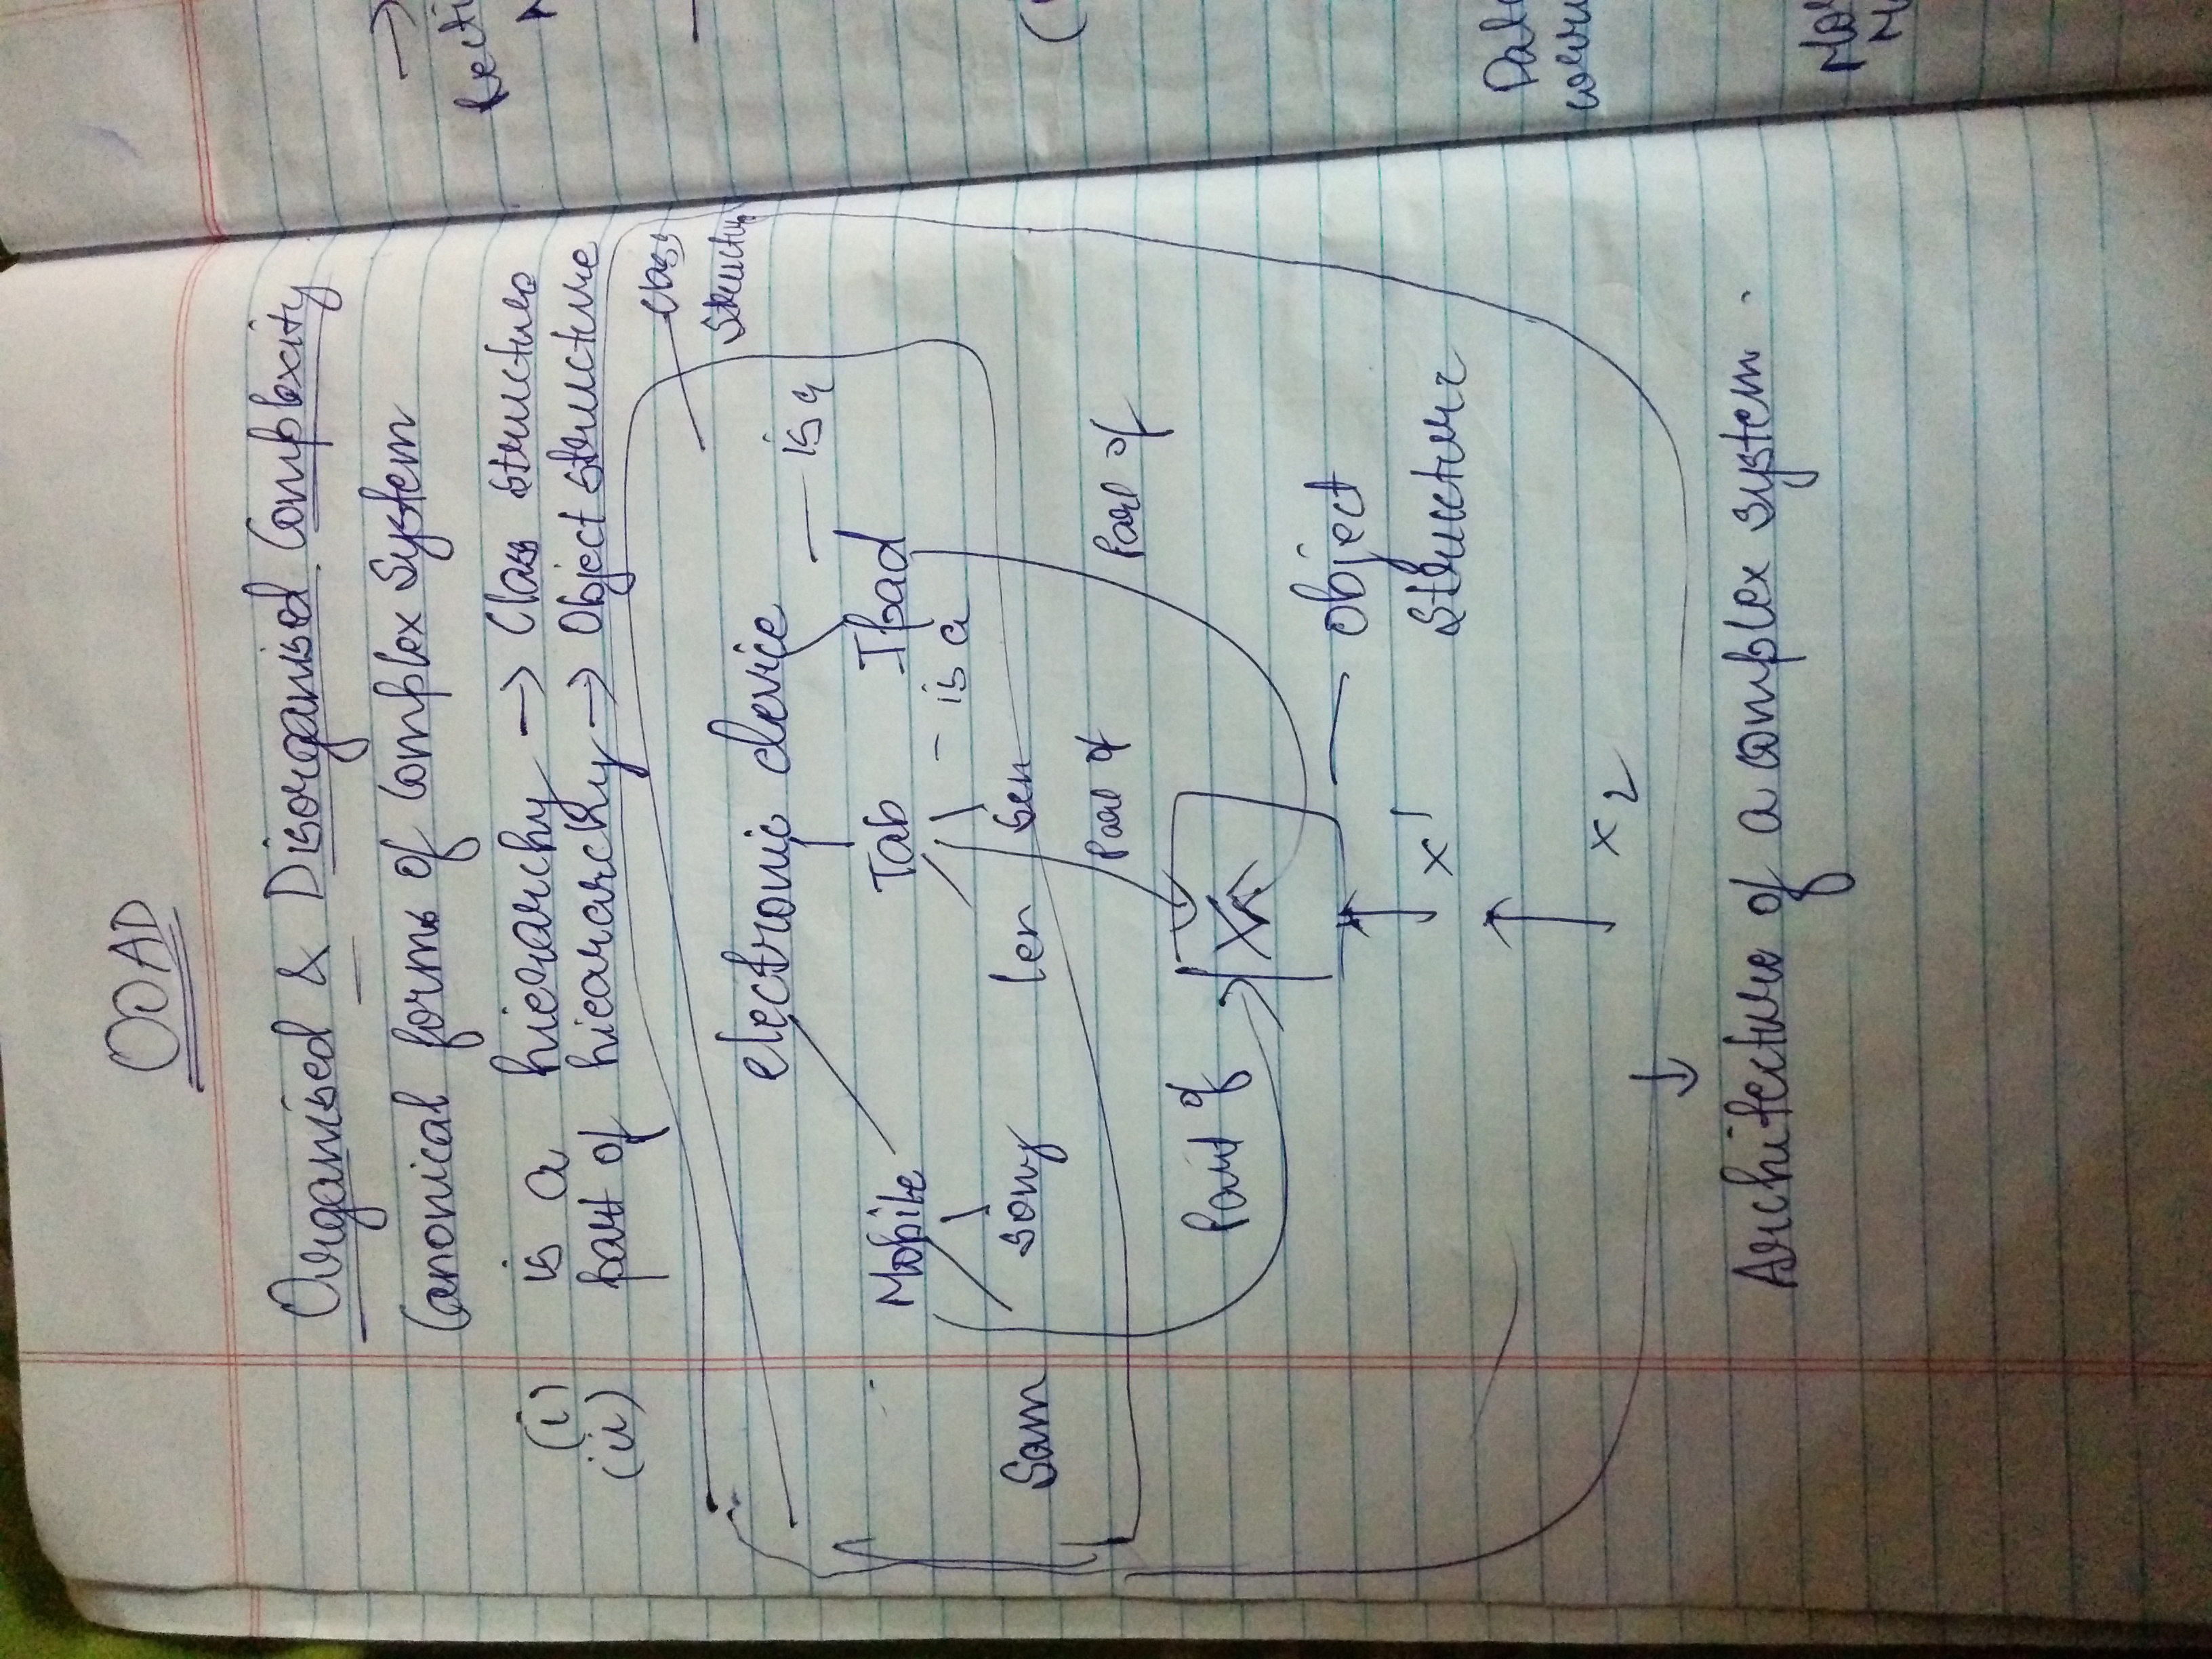 OOAD
Organised & Disorganised Complexity
Canonical forms of Complex System
(i) is a hierarchy → Class structure
(ii) part of hiearchy → Object structure
class
structure
electronic device
— is a
Mobile Tab Ipad
— is a
Sam Sony len ben
Part of Part of Part of
— Object
structure
X1
X2
Architecture of a complex system.